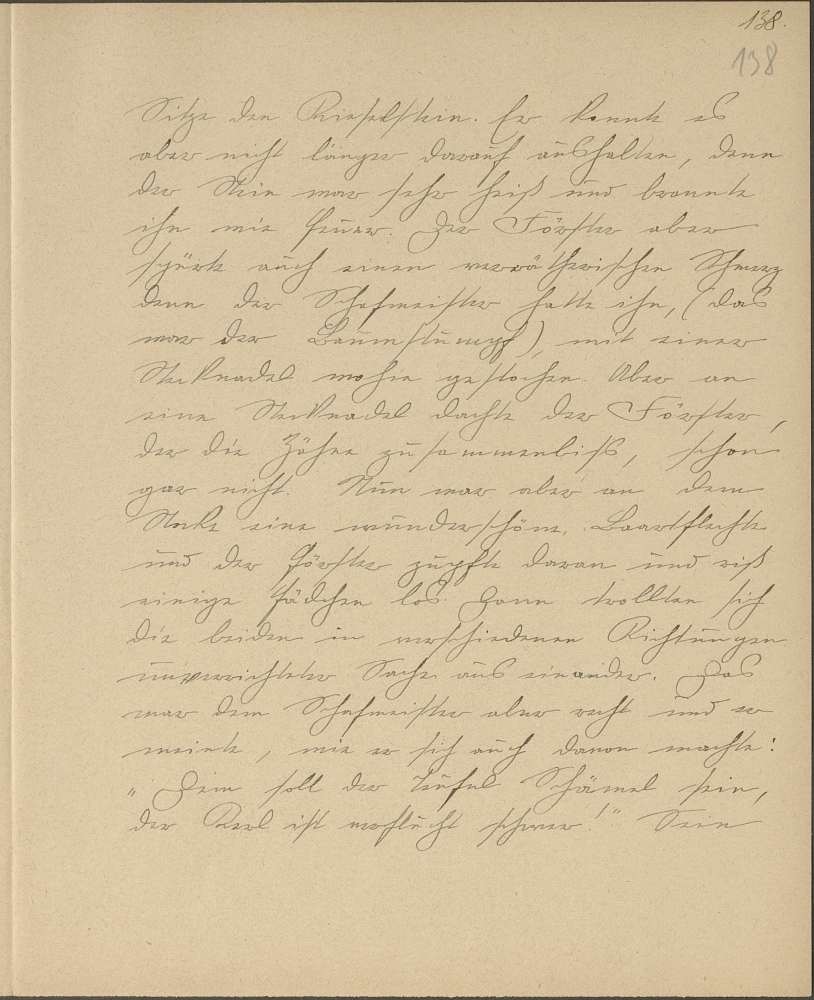 138.
138
Sitze den Kieselstein. Er konnte es
aber nicht länger darauf aushalten, denn
der Stein war sehr heiß und brannte
ihn wie Feuer. Der Förster aber
spürte auch einen verrätherischen Schmerz
denn der Schafmeister hatte ihn, (das
war der Baumstumpf), mit einer
Stecknadel wohin gestochen. Aber an
eine Stecknadel dachte der Förster,
der die Zähne zusammenbiß, schon
gar nicht. Nun war aber an dem
Stocke eine wunderschöne, Baartflechte
und der Förster zupfte daran und riß
einige Fädchen los. Dann trollten sich
die beiden in verschiedenen Richtungen
unverrichteter Sache aus einander. Das
war dem Schafmeister aber recht und er
meinte, wie er sich auch davon machte:
„Dem soll der Teufel Schämel sein,
der Kerl ist verflucht schwer!" Sein